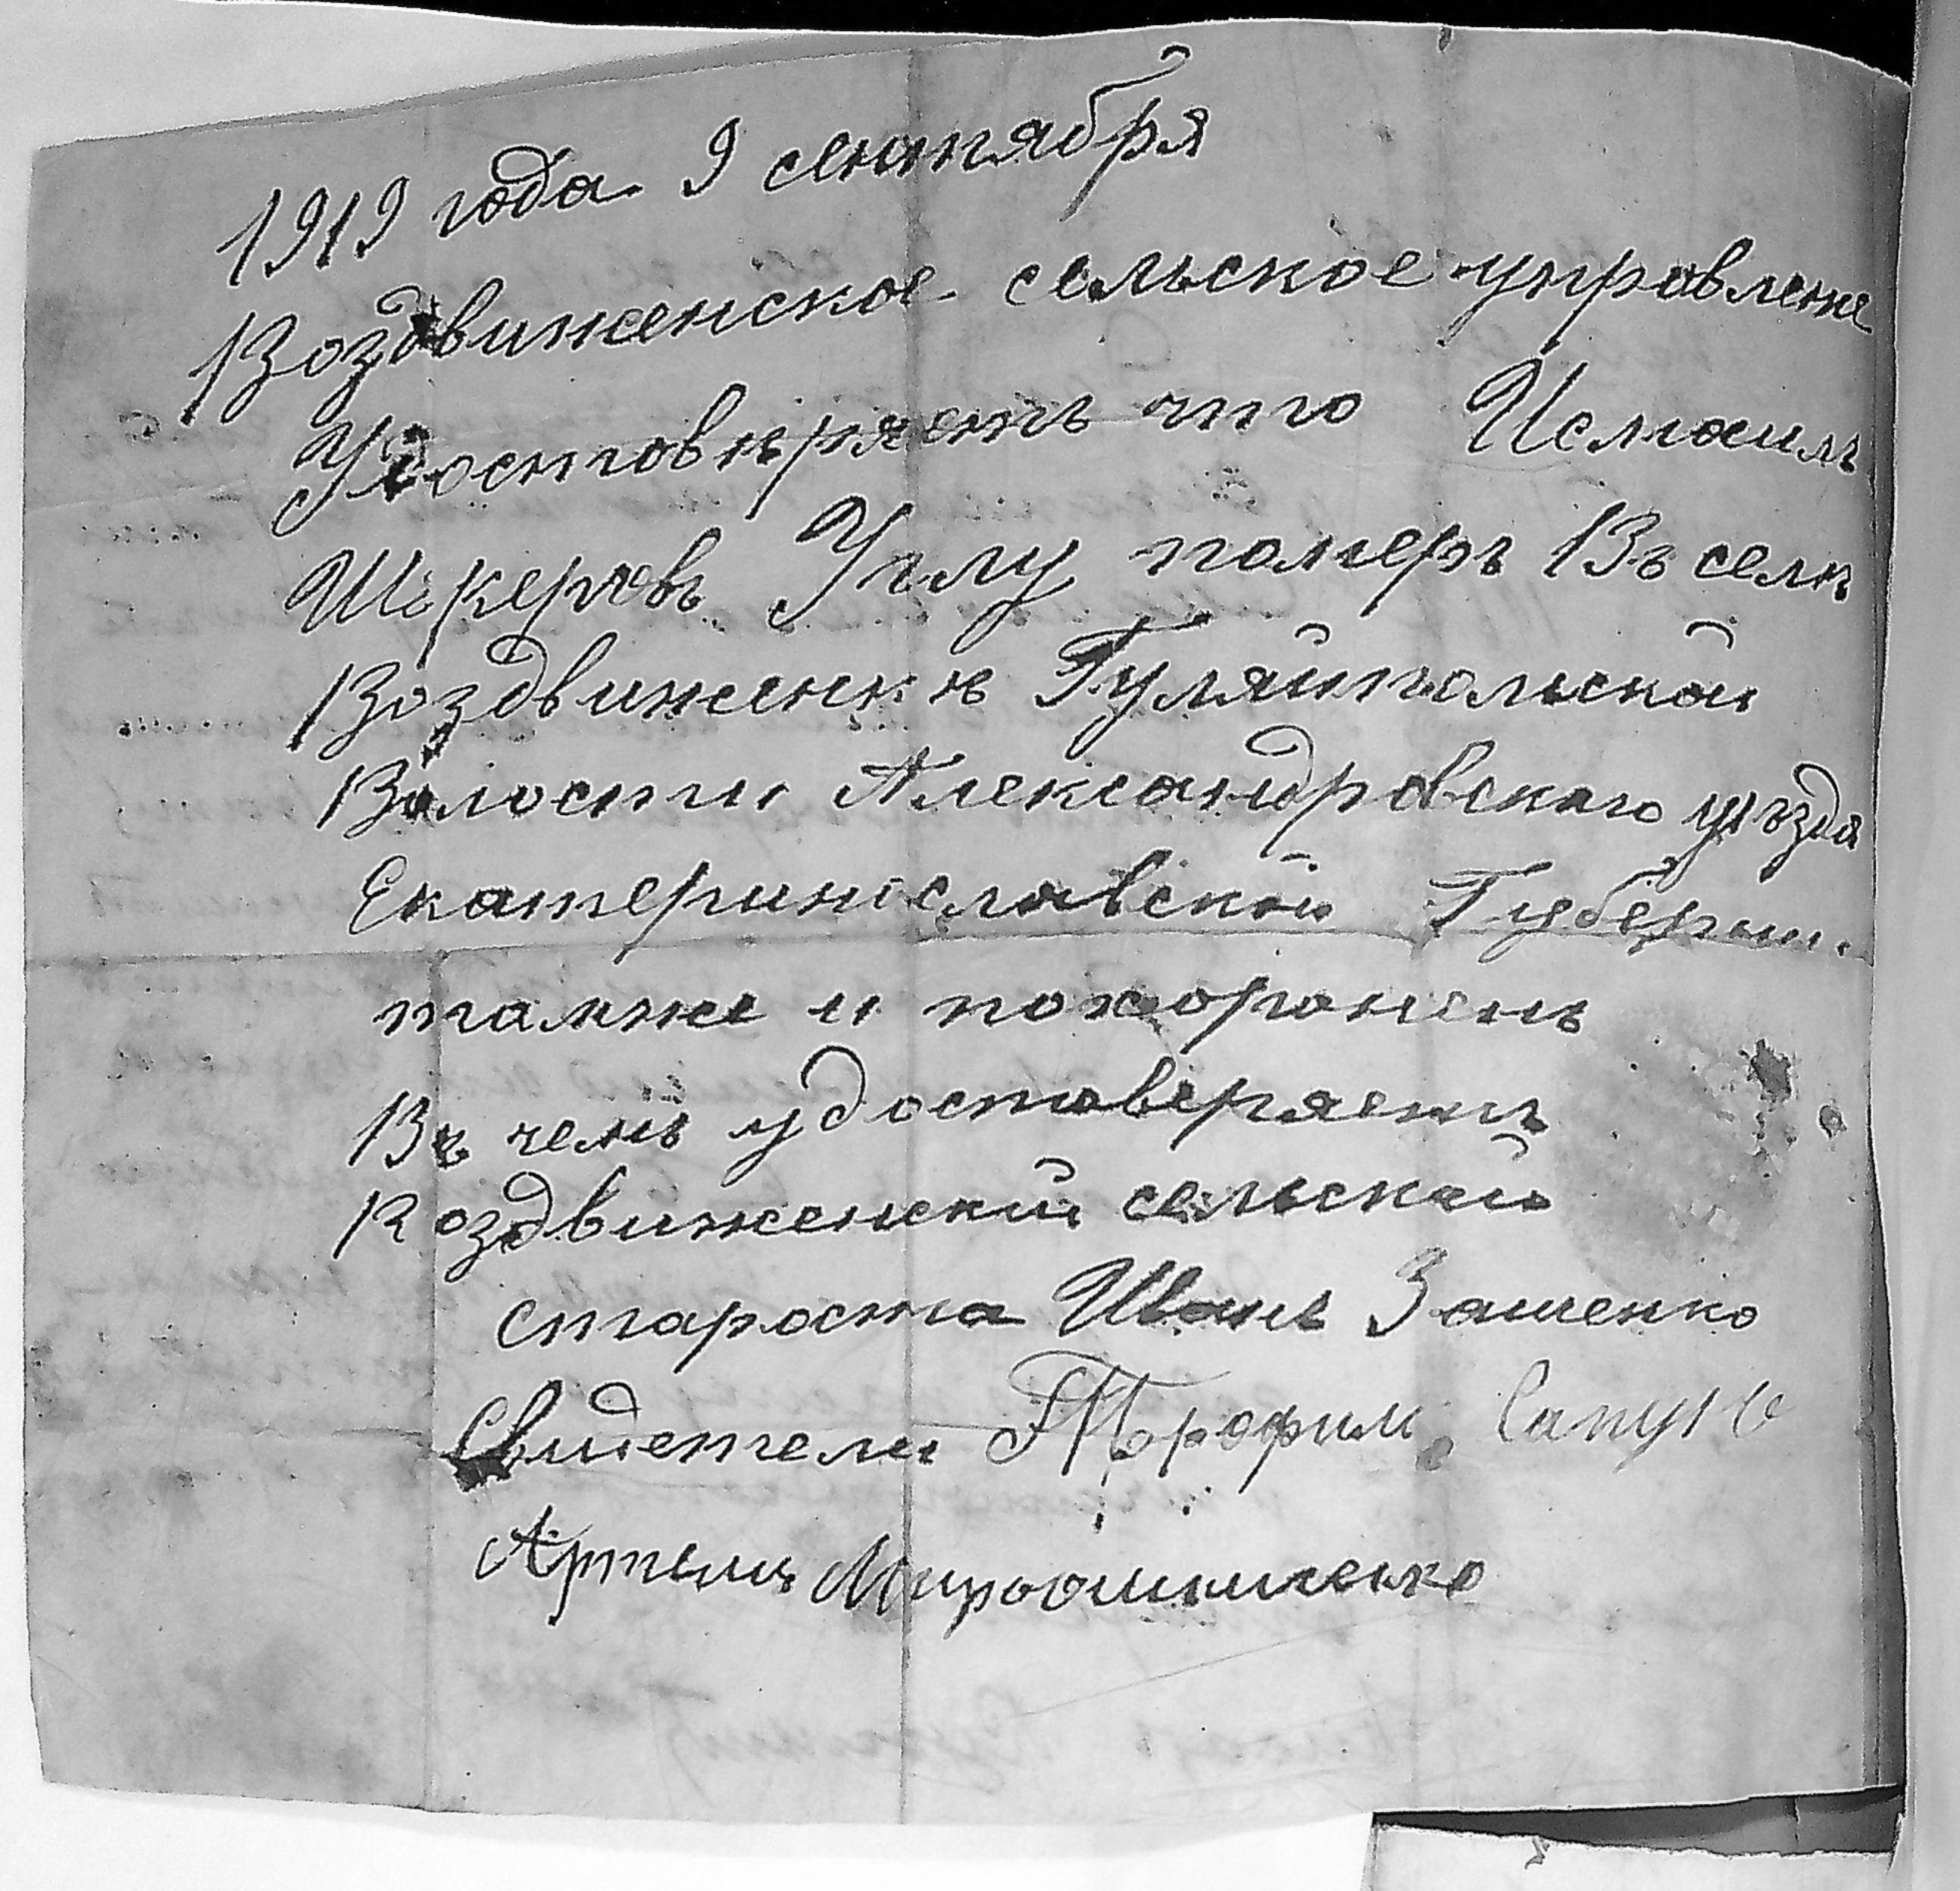 1919 года 9 сентября
Воздвиженское сельское управление
Удостовѣряетъ что Исмаилъ
Шекеровъ Углу померъ Въ селѣ
Воздвиженкѣ Гуляйпольской
Волости Александровскаго уѣзда
Екатеринославской Губернии
тамже и похороненъ
Въ чемъ удостоверяетъ
Воздвиженский сельский
староста Иванъ Зашенко
Свидетели Трофим
Артемъ Мирошниченко